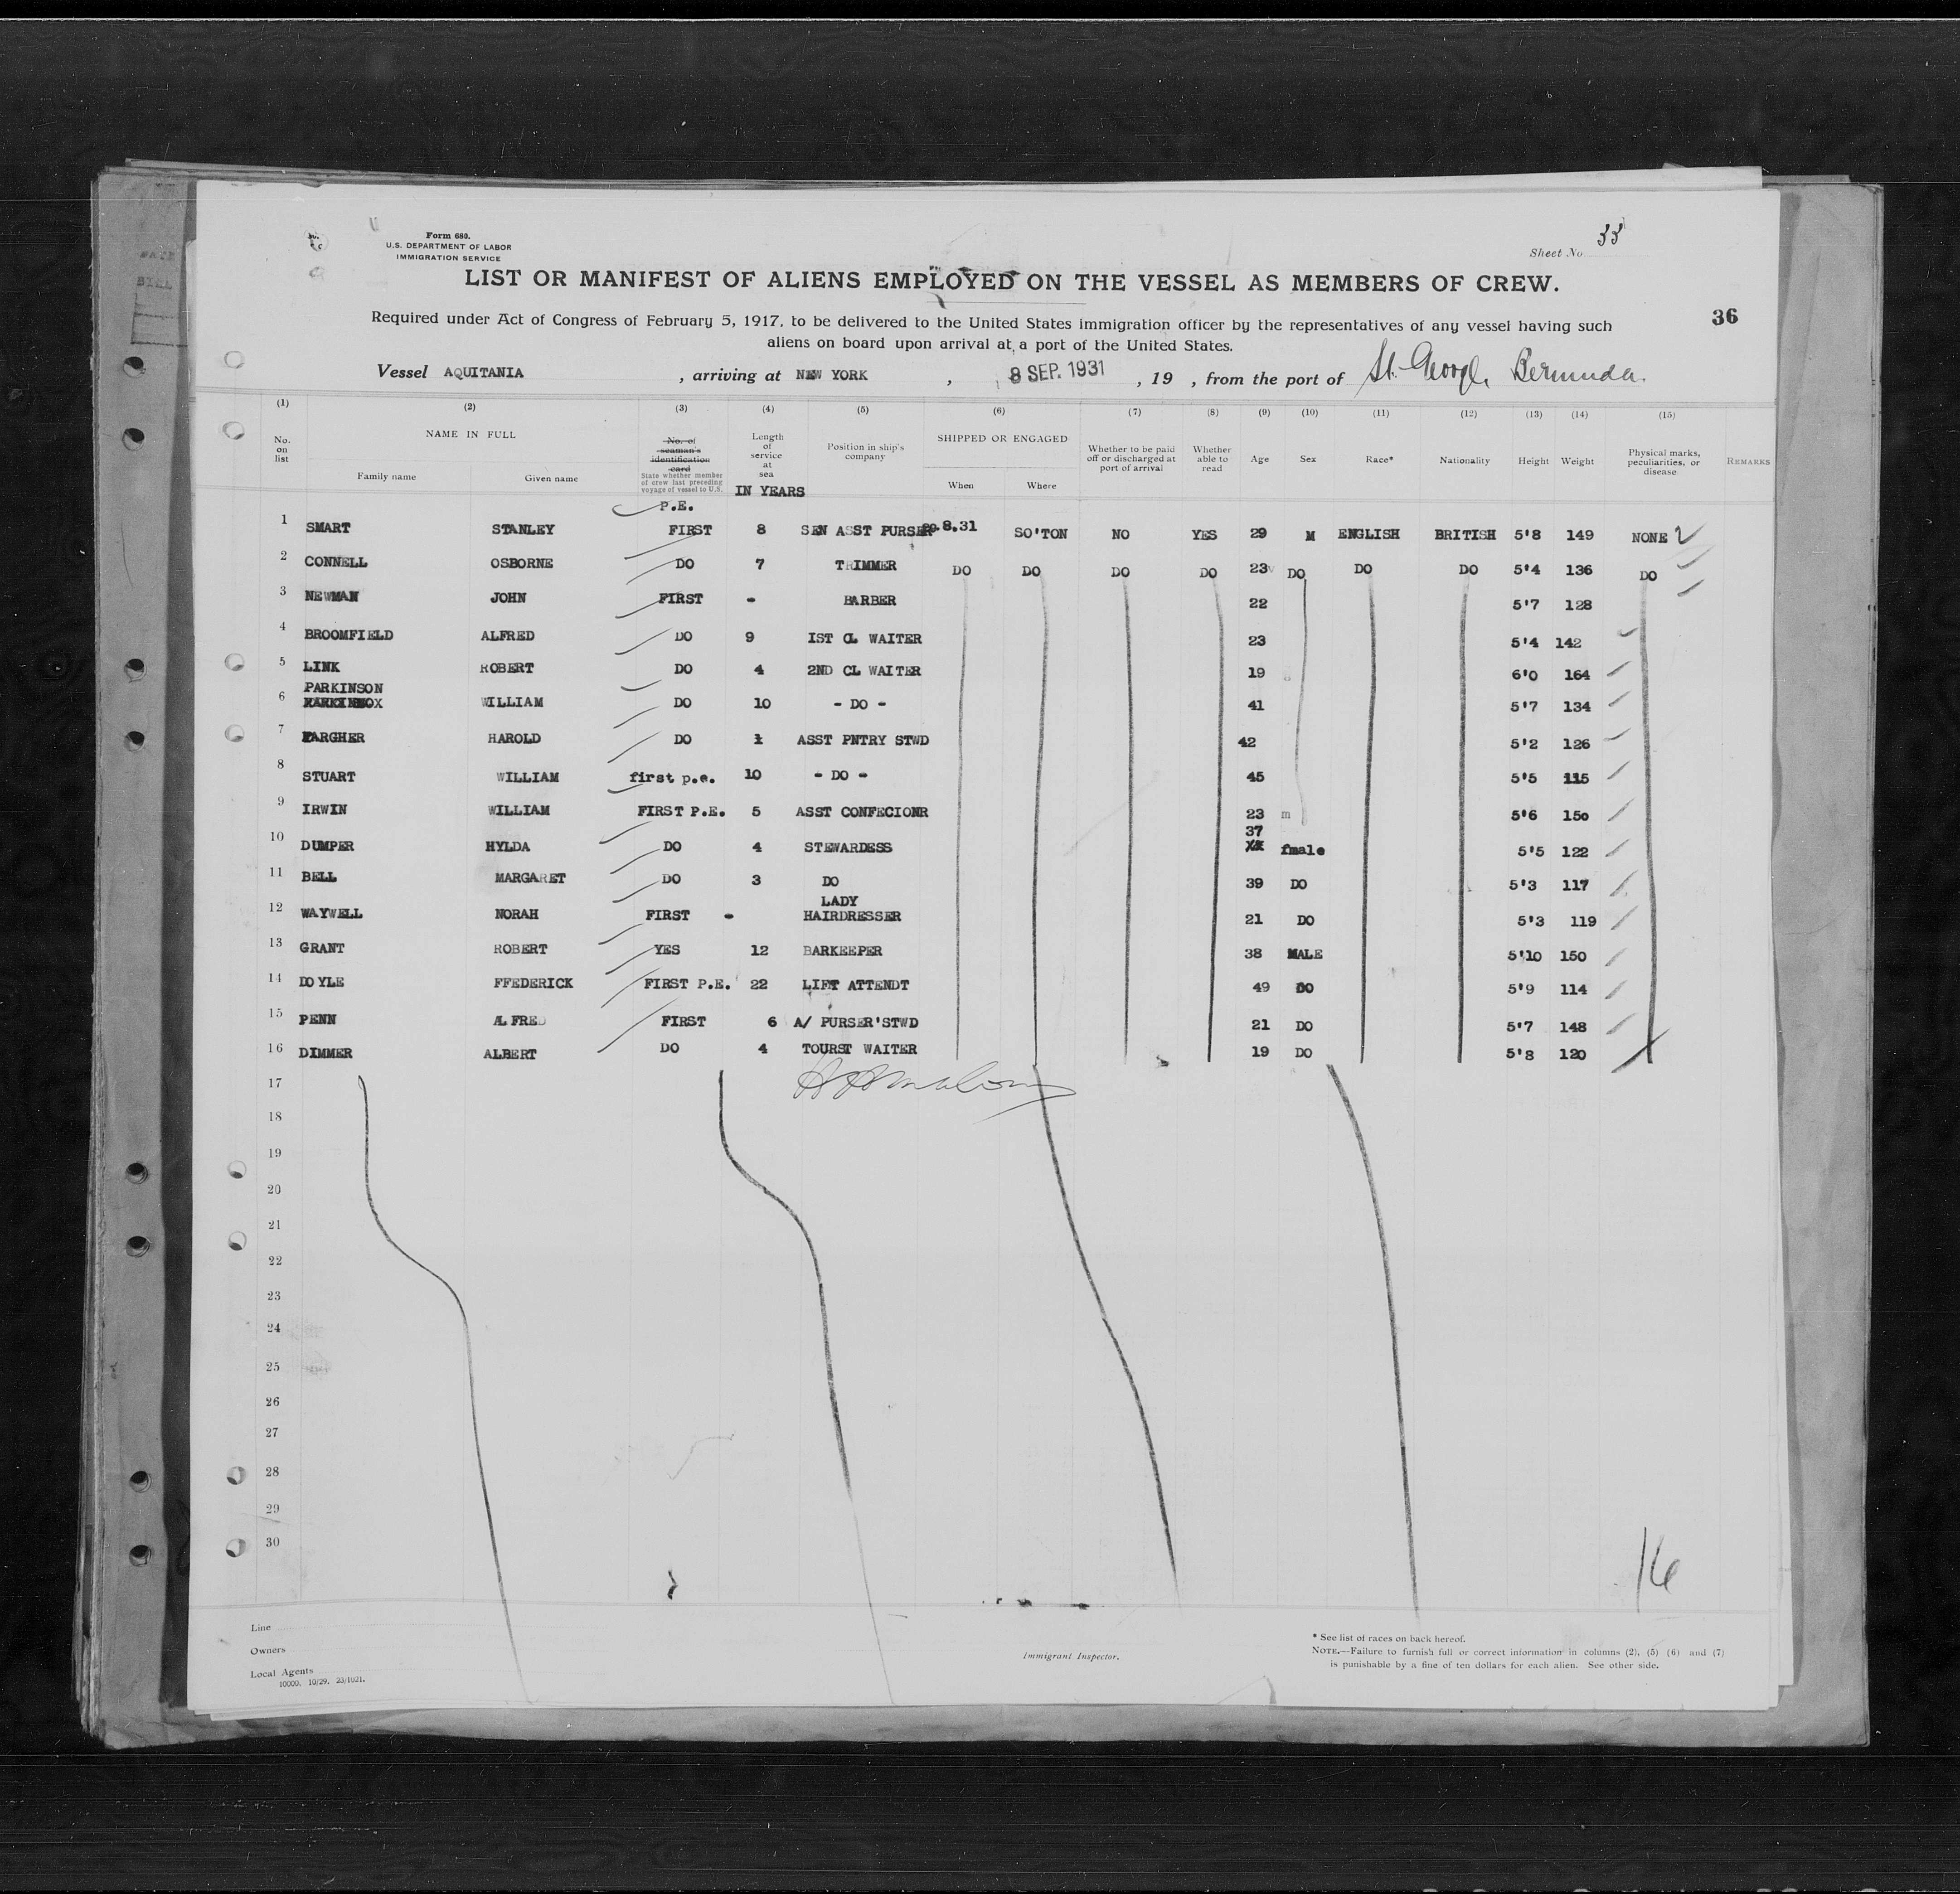 Form 680.
U.S. DEPARTMENT OF LABOR
IMMIGRATION SERVICE
Sheet No. 33
LIST OR MANIFEST OF ALIENS EMPLOYED ON THE VESSEL AS MEMBERS OF CREW.
36
Required under Act of Congress of February 5, 1917, to be delivered to the United States immigration officer by the representatives of any vessel having such
aliens on board upon arrival at a port of the United States.
Vessel AQUITANIA , arriving at NEW YORK , 8 SEP. 1931 , 19 , from the port of St. George, Bermuda.
(1) (2) (3) (4) (5) (6) (7) (8) (9) (10) (11) (12) (13) (14) (15)
No. on list NAME IN FULL Family name Given name No. of seaman's identification card State whether member of crew last preceding voyage of vessel to U.S. Length of service at sea IN YEARS Position in ship's company SHIPPED OR ENGAGED When Where Whether to be paid off or discharged at port of arrival Whether able to read Age Sex Race* Nationality Height Weight Physical marks, peculiarities, or disease REMARKS
P.E.
1 SMART STANLEY FIRST 8 SEN ASST PURSER 20.8.31 SO'TON NO YES 29 M ENGLISH BRITISH 5'8 149 NONE
2 CONNELL OSBORNE DO 7 TRIMMER DO DO DO DO 23 DO DO DO 5'4 136 DO
3 NEWMAN JOHN FIRST - BARBER 22 5'7 128
4 BROOMFIELD ALFRED DO 9 IST CL WAITER 23 5'4 142
5 LINK ROBERT DO 4 2ND CL WAITER 19 6'0 164
PARKINSON
6 WILLIAM DO 10 - DO - 41 5'7 134
7 FARGHER HAROLD DO 1 ASST PNTRY STWD 42 5'2 126
8 STUART WILLIAM first p.e. 10 - DO - 45 5'5 115
9 IRWIN WILLIAM FIRST P.E. 5 ASST CONFECIONR 23 m 5'6 150
37
10 DUMPER HYLDA DO 4 STEWARDESS fmale 5'5 122
11 BELL MARGARET DO 3 DO 39 DO 5'3 117
LADY
12 WAYWELL NORAH FIRST - HAIRDRESSER 21 DO 5'3 119
13 GRANT ROBERT YES 12 BARKEEPER 38 MALE 5'10 150
14 DOYLE FFEDERICK FIRST P.E. 22 LIFT ATTENDT 49 DO 5'9 114
15 PENN ALFRED FIRST 6 A/ PURSER'STWD 21 DO 5'7 148
16 DIMMER ALBERT DO 4 TOURST WAITER 19 DO 5'8 120
17
18
19
20
21
22
23
24
25
26
27
28
29
30
16
Line
Owners
Local Agents
10000. 10/29. 23/1021.
Immigrant Inspector.
* See list of races on back hereof.
NOTE.—Failure to furnish full or correct information in columns (2), (5) (6) and (7)
is punishable by a fine of ten dollars for each alien. See other side.